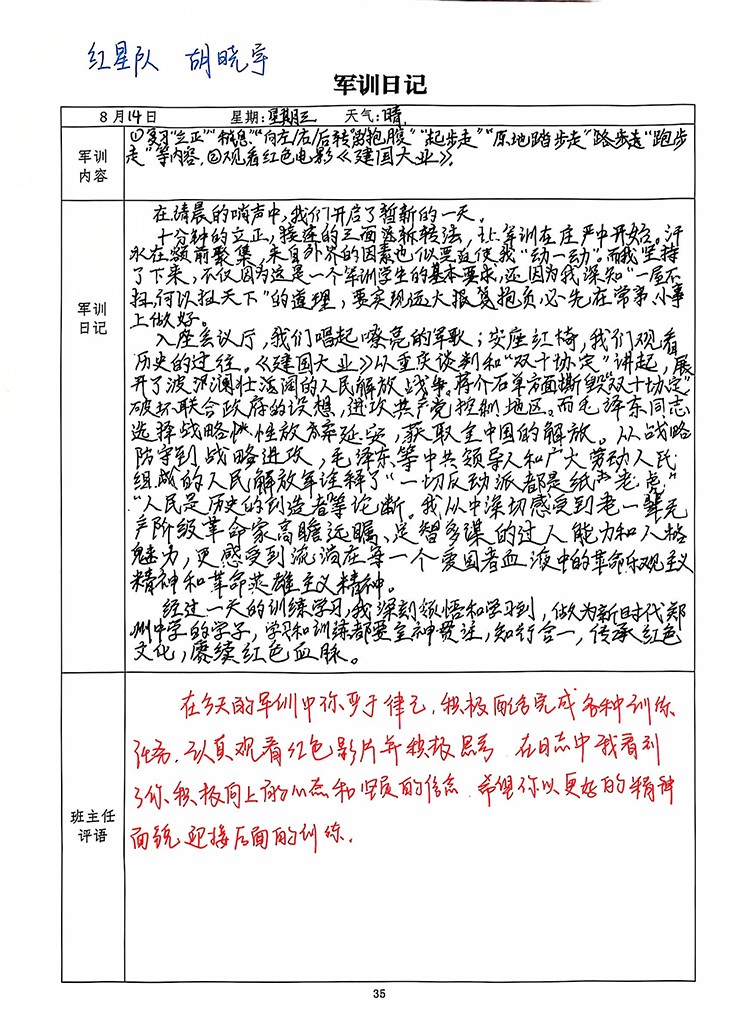 红星队 胡晓宇
军训日记
8月14日 星期：星期三 天气：晴
军训
内容
①复习“立正”“稍息”“向左/右/后转”“抱腹”“起步走”“原地踏步走”“踏步走”“跑步
走”等内容，②观看红色电影《建国大业》。
军训
日记
在清晨的哨声中，我们开启了暂新的一天。
十分钟的立正，接连的三面转法，让军训在庄严中开始。汗
水在额前聚集，来自外界的因素也似要迫使我“动一动”。而我坚持
了下来，不仅因为这是一个军训学生的基本要求，还因为我深知“一屋不
扫，何以扫天下”的道理，要实现远大报负，必先在常事、小事
上做好。
入座会议厅，我们唱起嘹亮的军歌；安座红椅，我们观看
历史的过往。《建国大业》从重庆谈判和“双十协定”讲起，展
开了波澜壮阔的人民解放战争。蒋介石单方面撕毁“双十协定”
破坏联合政府的设想，进攻共产党控制地区。而毛泽东同志
选择战略性放弃延安，获取全中国的解放。从战略
防守到战略进攻，毛泽东等中共领导人和广大劳动人民
组成的人民解放军诠释了“一切反动派都是纸老虎”
“人民是历史的创造者”等论断。我从中深切感受到老一辈无
产阶级革命家高瞻远瞩、足智多谋的过人能力和人格
魅力，更感受到流淌在每一个爱国者血液中的革命乐观主义
精神和革命英雄主义精神。
经过一天的训练学习，我深刻领悟和学习到，做为新时代郑
州中学的学子，学习和训练都要全神贯注，知行合一，传承红色
文化，赓续红色血脉。
班主任
评语
在今天的军训中你严于律己，积极配合完成各种训练
任务，认真观看红色影片并积极思考，在日志中我看到
了你积极向上的心态和坚定的信念，希望你以更好的精神
面貌迎接后面的训练。
35